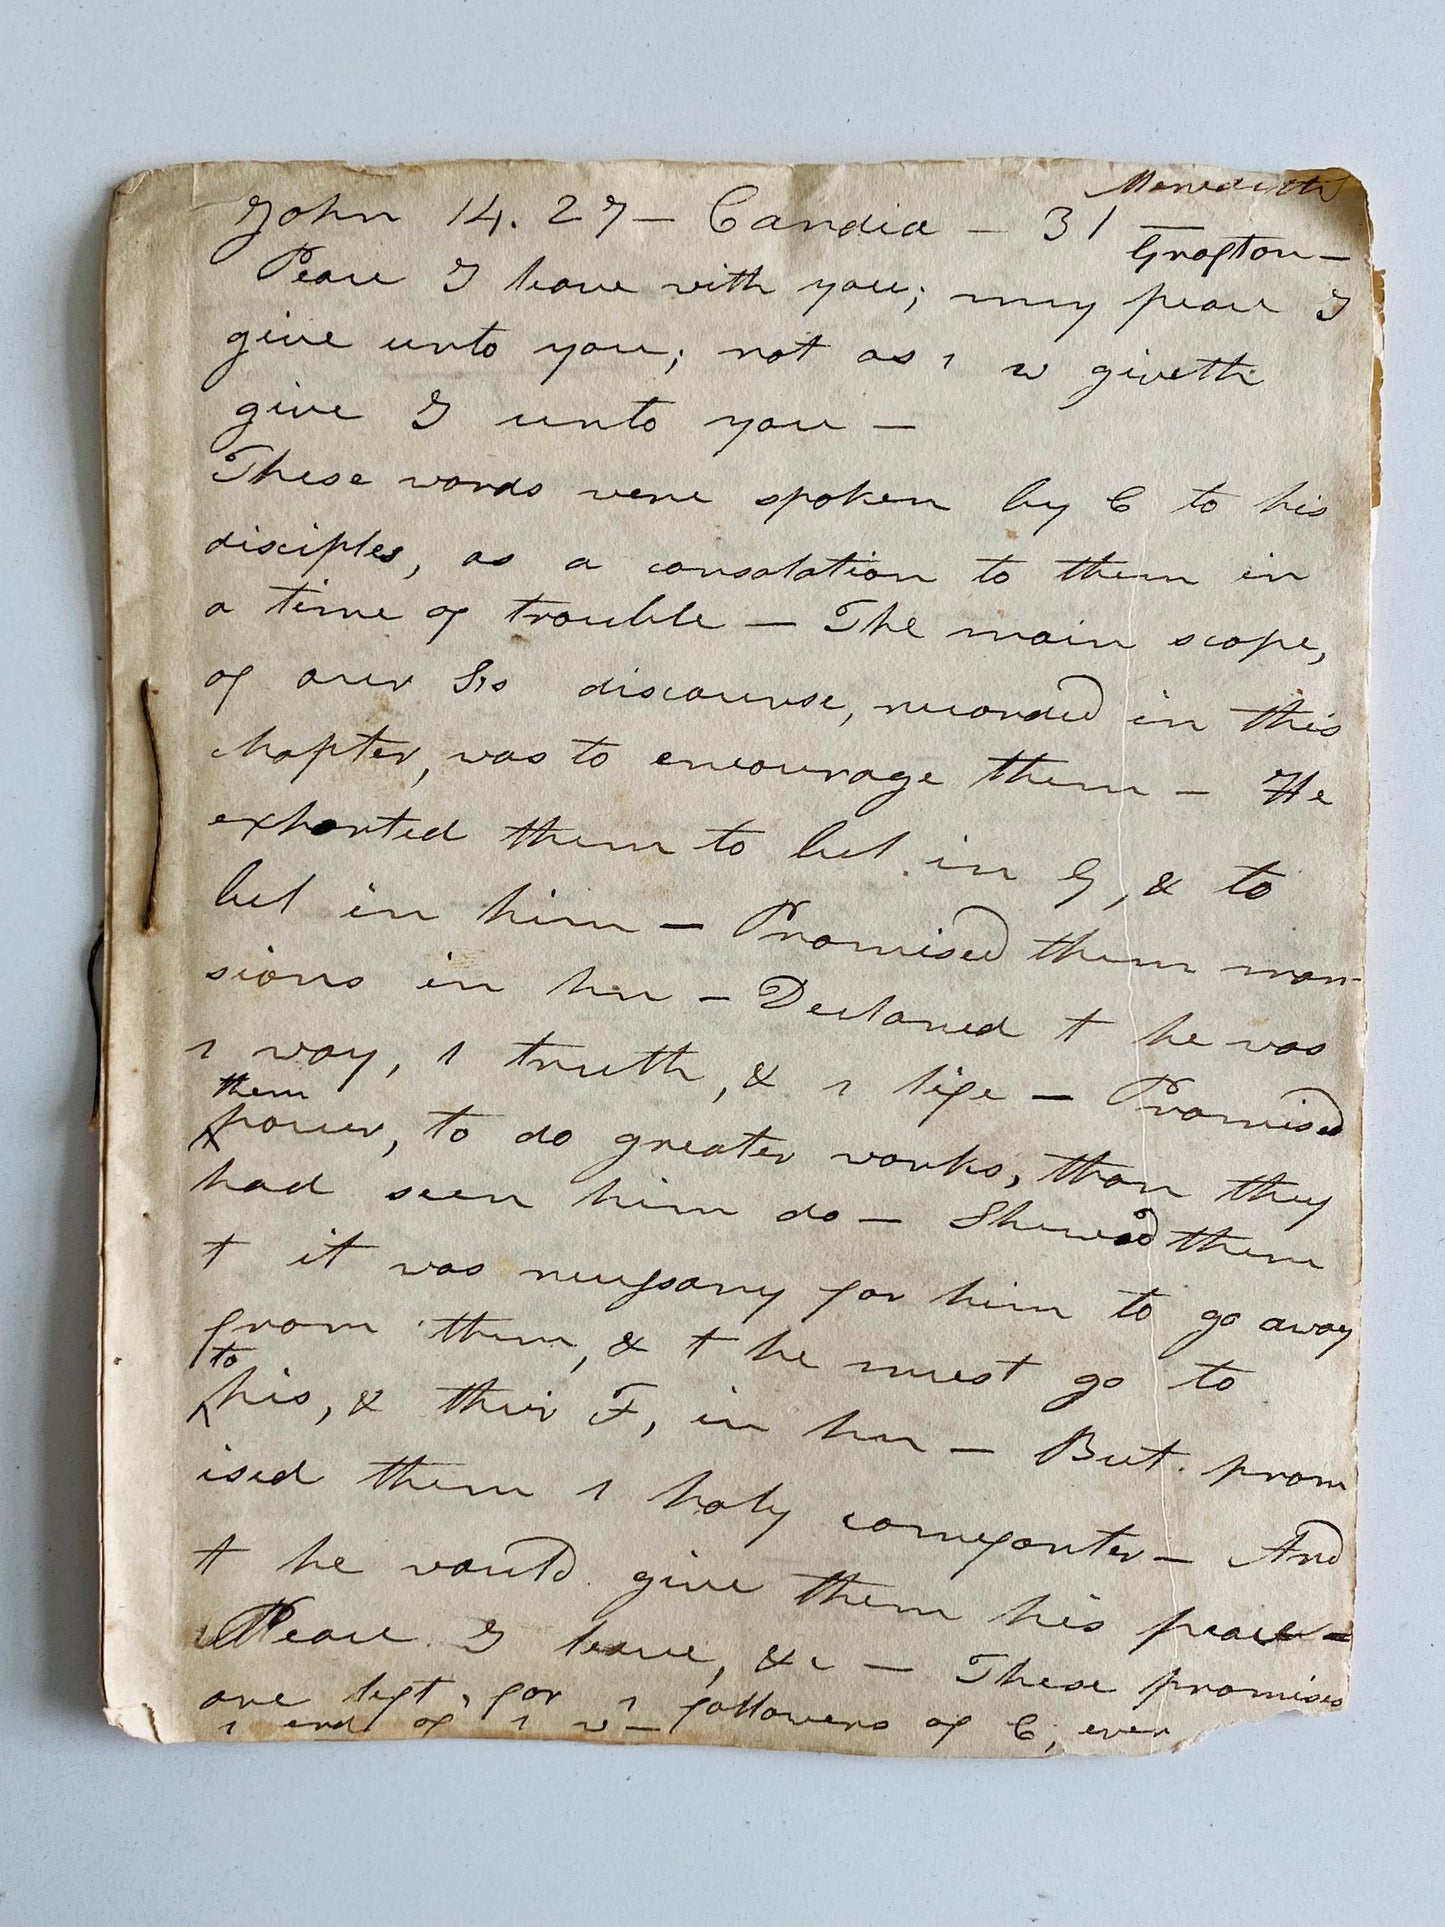 Meredith
John 14. 27 — Candia — 31 — Grafton —
Peace I leave with you; my peace I
give unto you; not as 1 w giveth
give I unto you —
These words were spoken by C to his
disciples, as a consolation to them in
a time of trouble — The main scope,
of our S,s discourse, recorded in this
chapter, was to encourage them — He
exhorted them to bel in G, & to
bel in him — Promised them man-
sions in hn — Declared t he was
1 way, 1 truth, & 1 life — Promised
them
^power, to do greater works, than they
had seen him do — Shewed them
t it was necessary for him to go away
from them, & t he must go to
to
^his, & their F, in hn — But prom
ised them 1 holy comforter — And
t he would give them his peace —
Peace I leave, &c — These promises
are left, for 1 followers of C, even
1 end of 1 w —